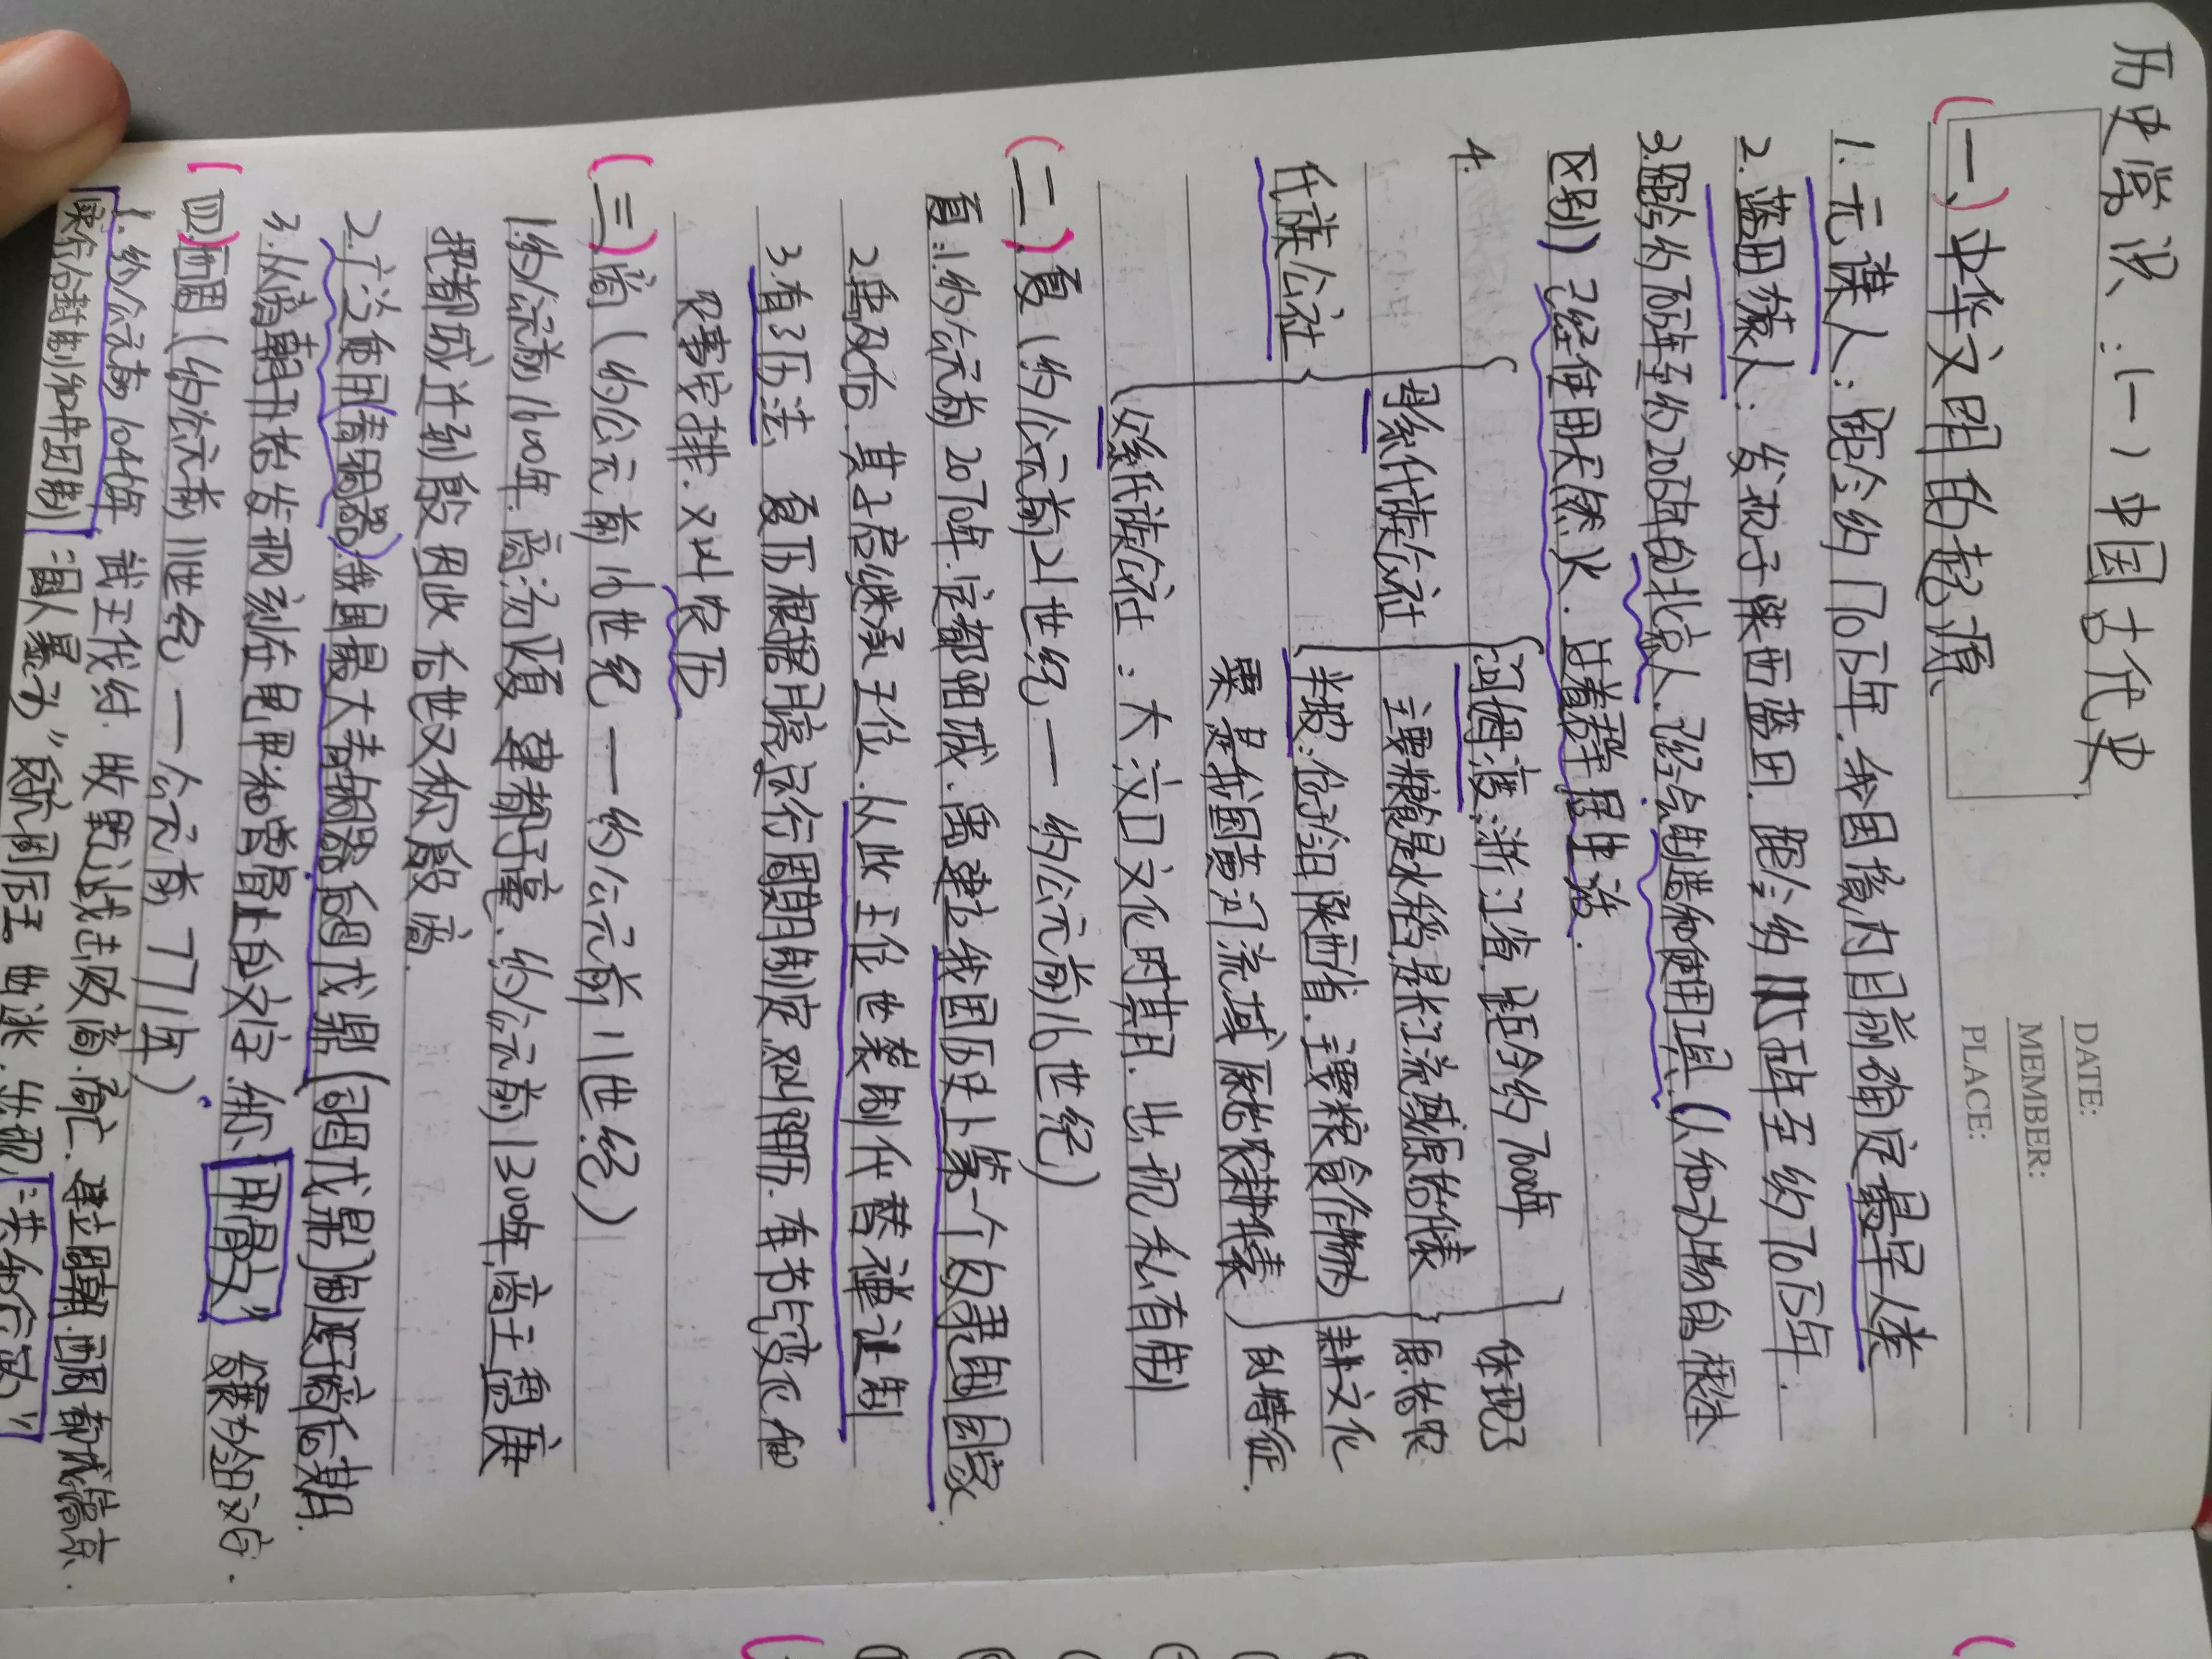 历史常识：（一）中国古代史
DATE:
MEMBER:
PLACE:
（一、）中华文明的起源
1.元谋人：距今约170万年.我国境内目前确定最早人类
2.蓝田猿人：发现于陕西蓝田.距今约115万年至约70万年.
3.距今约70万年至约20万年的北京人.已经会制造和使用工具（人和动物的根本
区别）已经使用天然火.过着群居生活.
4.
氏族公社
母系氏族公社
河姆渡：浙江省.距今约7000年
主要粮食是水稻.是长江流域原始农耕
半坡：位于沿陕西省.主要粮食作物为
粟 是我国黄河流域原始农耕
体现了
原始农
耕文化
的特征.
父系氏族公社：大汶口文化时期.出现私有制
（二、）夏（约公元前21世纪—约公元前16世纪）
夏：1.约公元前2070年.定都阳城.禹建立我国历史上第一个奴隶制国家
2.禹死后.其子启继承王位.从此王位世袭制代替禅让制
3.有历法 夏历根据月亮运行周期制定.又叫阴历.有节气变化和
农事安排.又叫农历
（三、）商（约公元前16世纪—约公元前11世纪）
1.约公元前1600年.商汤灭夏 建都于亳.约公元前1300年,商王盘庚
把都城迁到殷 因此后世又称殷商.
2.广泛使用（青铜器）我国最大青铜器司母戊鼎（司母戊鼎）制度商后期.
3.从商朝开始发现刻在龟甲和兽骨上的文字.称“甲骨文”
（四、）西周（约公元前11世纪—公元前771年）
1.约公元前1046年.武王伐纣.牧野之战击败商.商亡.建立周朝.西周都城镐京.
实行分封制和井田制：国人暴动“ 厉王 出逃.出现“共和行政”